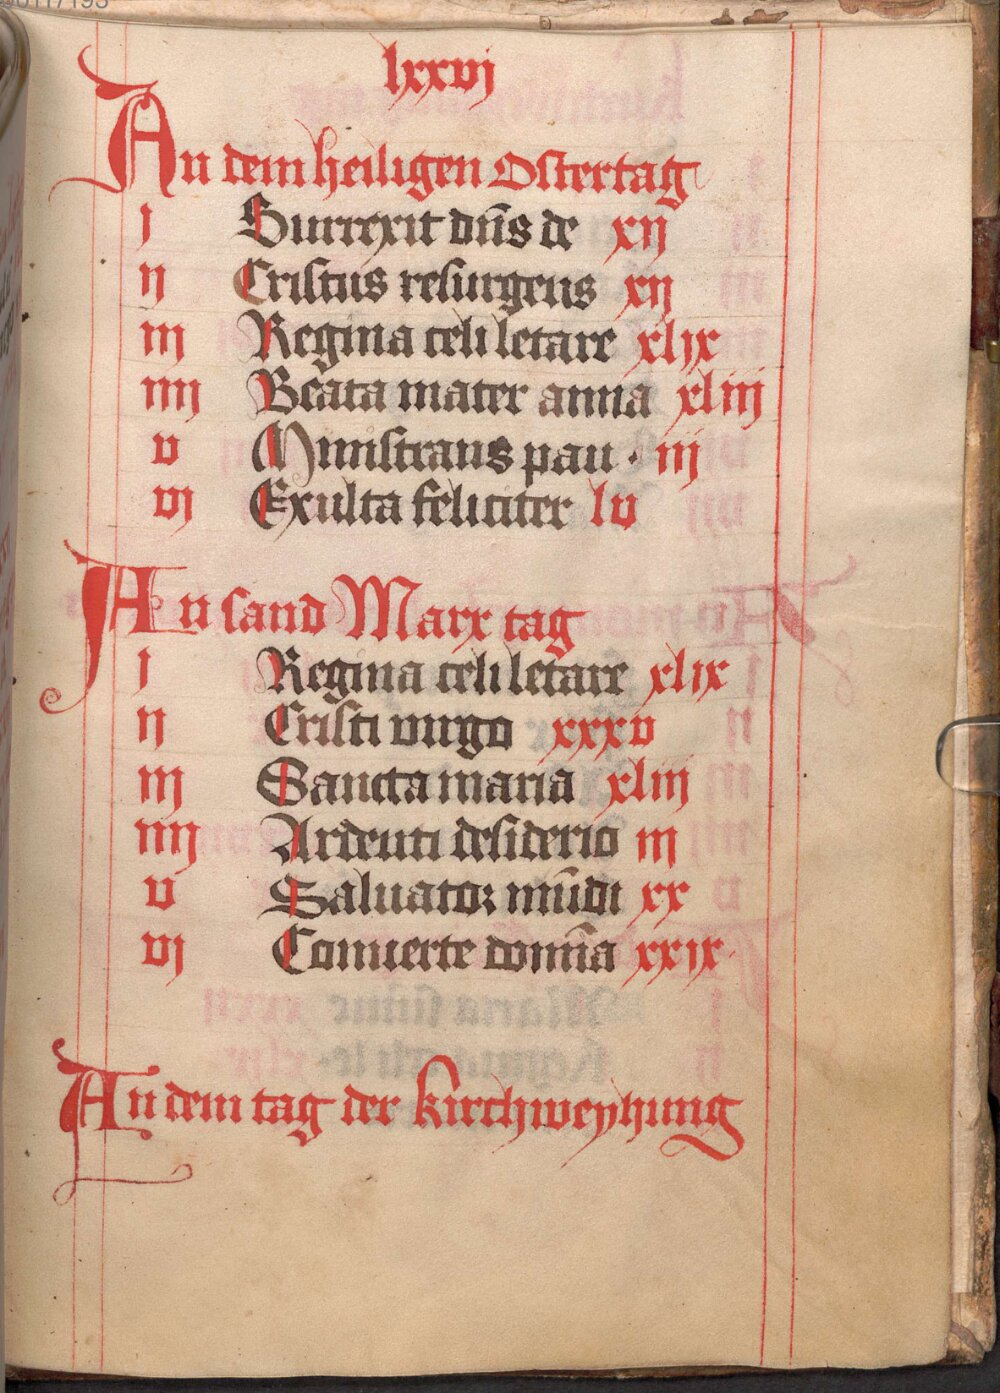 lxxvj
An dem heiligen Ostertag
j Surrexit dn̄s de xij
ij Cristus resurgens xij
iij Regina celi letare xlix
iiij Beata mater anna xliij
v Ministrans pau · iij
vj Exulta feliciter lv
An sand Marx tag
j Regina celi letare xlix
ij Cristi virgo xxxv
iij Sancta maria xliij
iiij Ardenti desiderio iij
v Saluator mūdi xx
vj Conuerte domīa xxix
An dem tag der kirchweyhung